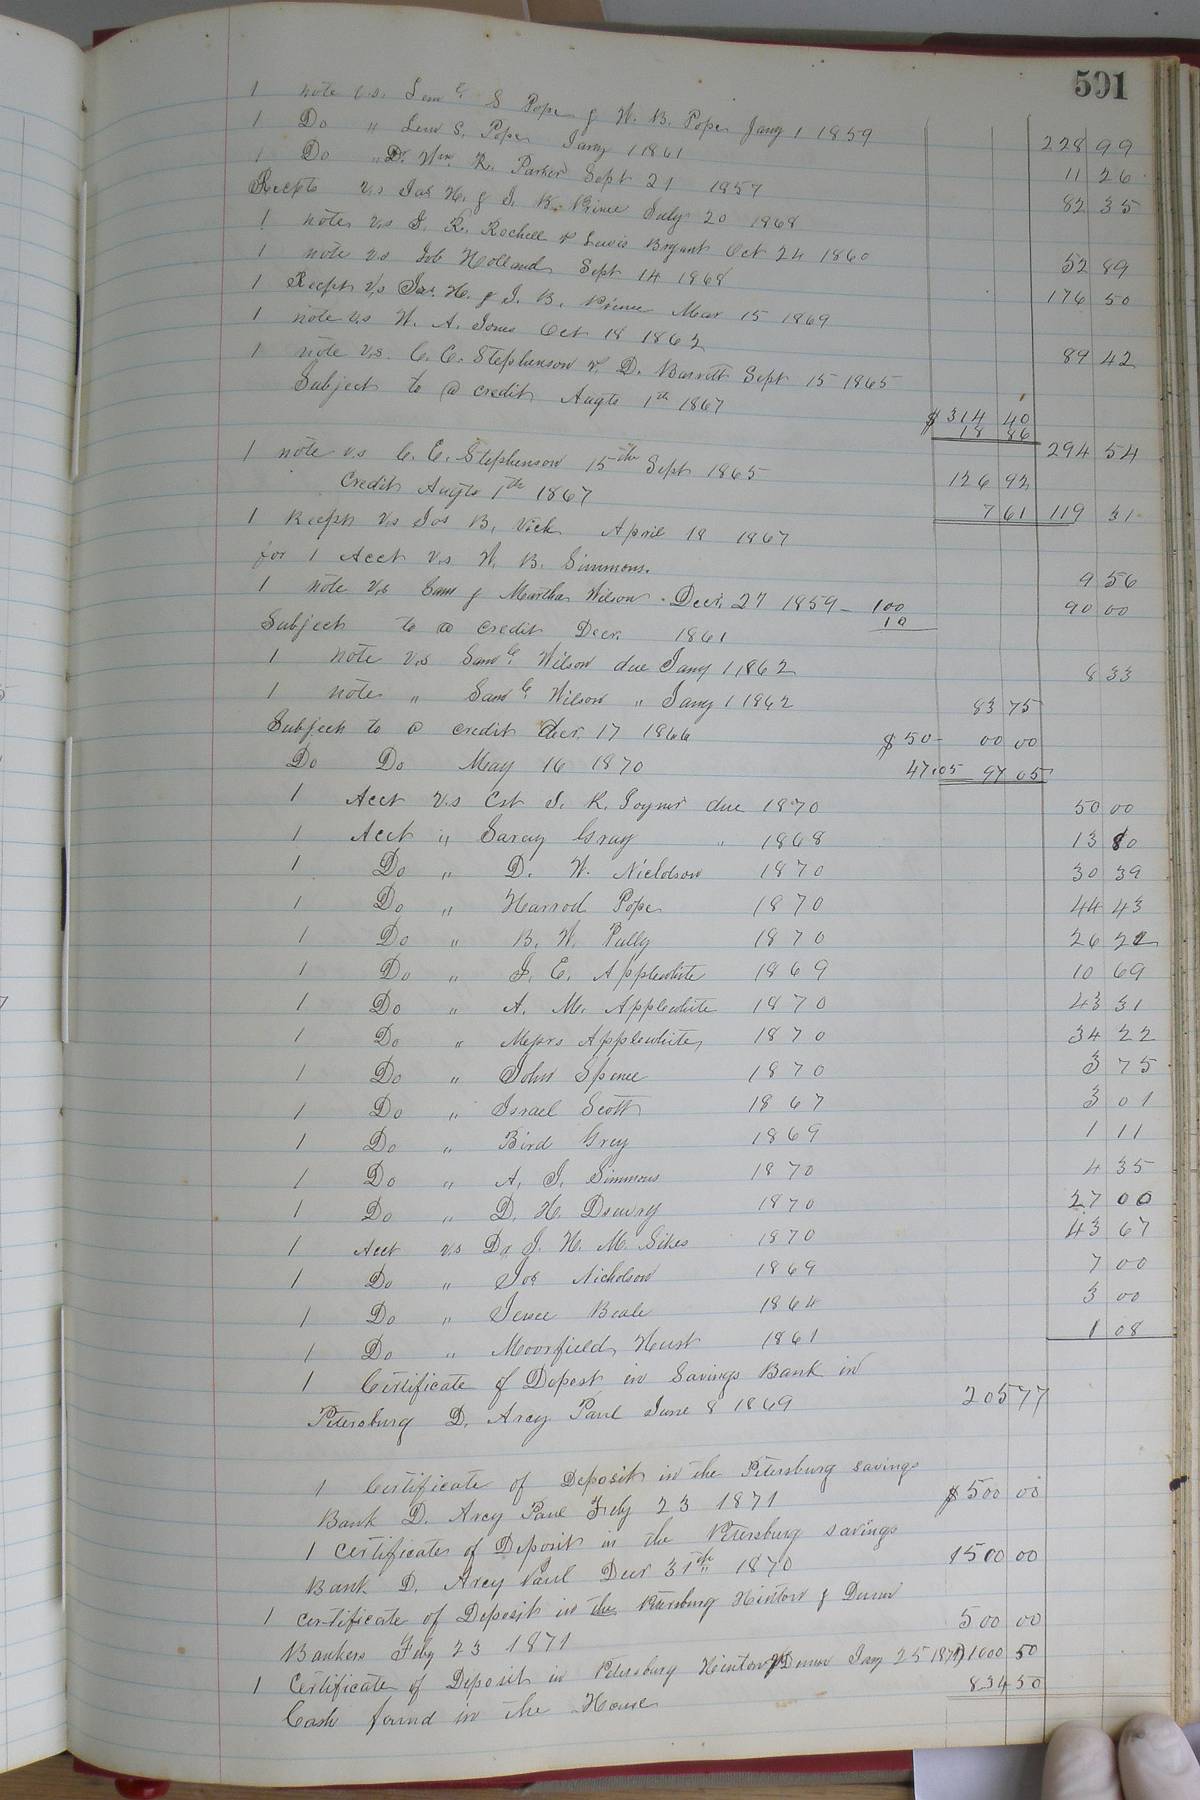 591
1 note v.s. Lem l. S Pope & W. B. Pope Jany 1 1859 228 99
1 Do " Lem S. Pope Jany 1 1861 11 26
1 Do " Dr. Wm. R. Parker Sept 21 1857 82 35
Recpts v.s Jas H. & J. B. Prince July 20 1868
1 note v.s J. R. Rochell & Lewis Bryant Oct 24 1860 52 89
1 note v.s Job Holland Sept 14 1868 176 50
1 Recpts v.s Jas. H. & J. B. Prince Mar 15 1869
1 note v.s W. A. Jones Oct 18 1862 89 42
1 note v.s. C. C. Stephenson & D. Barrett Sept 15 1865
Subject to @ credit Augts 1th 1867 $ 314 40
18 86 294 54
1 note v.s C. E. Stephenson 15th Sept 1865 126 92
Credit Augts 1th 1867 7 61 119 31
1 Recpts v.s Jos B. Vick April 18 1867
for 1 Acct v.s W. B. Simmons. 9 56
1 note v.s Sam & Martha Wilson Decr. 27 1859 100 90 00
Subject to @ credit Decr. 1861 10
1 note v.s Saml. Wilson due Jany 1, 1862 8 33
1 note " Saml. Wilson " Jany 1 1862 83 75
Subject to @ credit Decr. 17 1866 $ 50 00 00
Do Do May 16 1870 47.05 97 05
1 Acct v.s Est J. R. Joyner due 1870 50 00
1 Acct " Saray Gray " 1868 13 80
1 Do " D. W. Nicldson 1870 30 39
1 Do " Harrod Pope 1870 44 43
1 Do " B. W. Pully 1870 26 22
1 Do " J. E. Applewhite 1869 10 69
1 Do " A. M. Applewhite 1870 43 31
1 Do " Messrs Applewhite, 1870 34 22
1 Do " John Spence 1870 3 75
1 Do " Israel Scott 1867 3 01
1 Do " Bird Grey 1869 1 11
1 Do " A. J. Simmons 1870 4 35
1 Do " D. H. Drewry 1870 27 00
1 Acct v.s Dr J. H. M. Sikes 1870 43 67
1 Do " Jos Nicholson 1869 7 00
1 Do " Jesse Beale 1864 3 00
1 Do " Moorfield Hurst 1861 1 08
1 Certificate of Deposit in Savings Bank in
Petersburg D. Arcy Paul June 8 1869 205 77
1 Certificate of Deposit in the Petersburg savings
Bank D. Arcy Paul Feby 23 1871 $ 500 00
1 certificate of Deposit in the Petersburg savings
Bank D. Arcy Paul Decr 31th 1870 1500 00
1 certificate of Deposit in the Petersburg Hinton & Dunn
Bankers Feby 23 1871 500 00
1 Certificate of Deposit in Petersburg Hinton & Dunn Jany 25 1871 1000 50
Cash found in the House 834 50